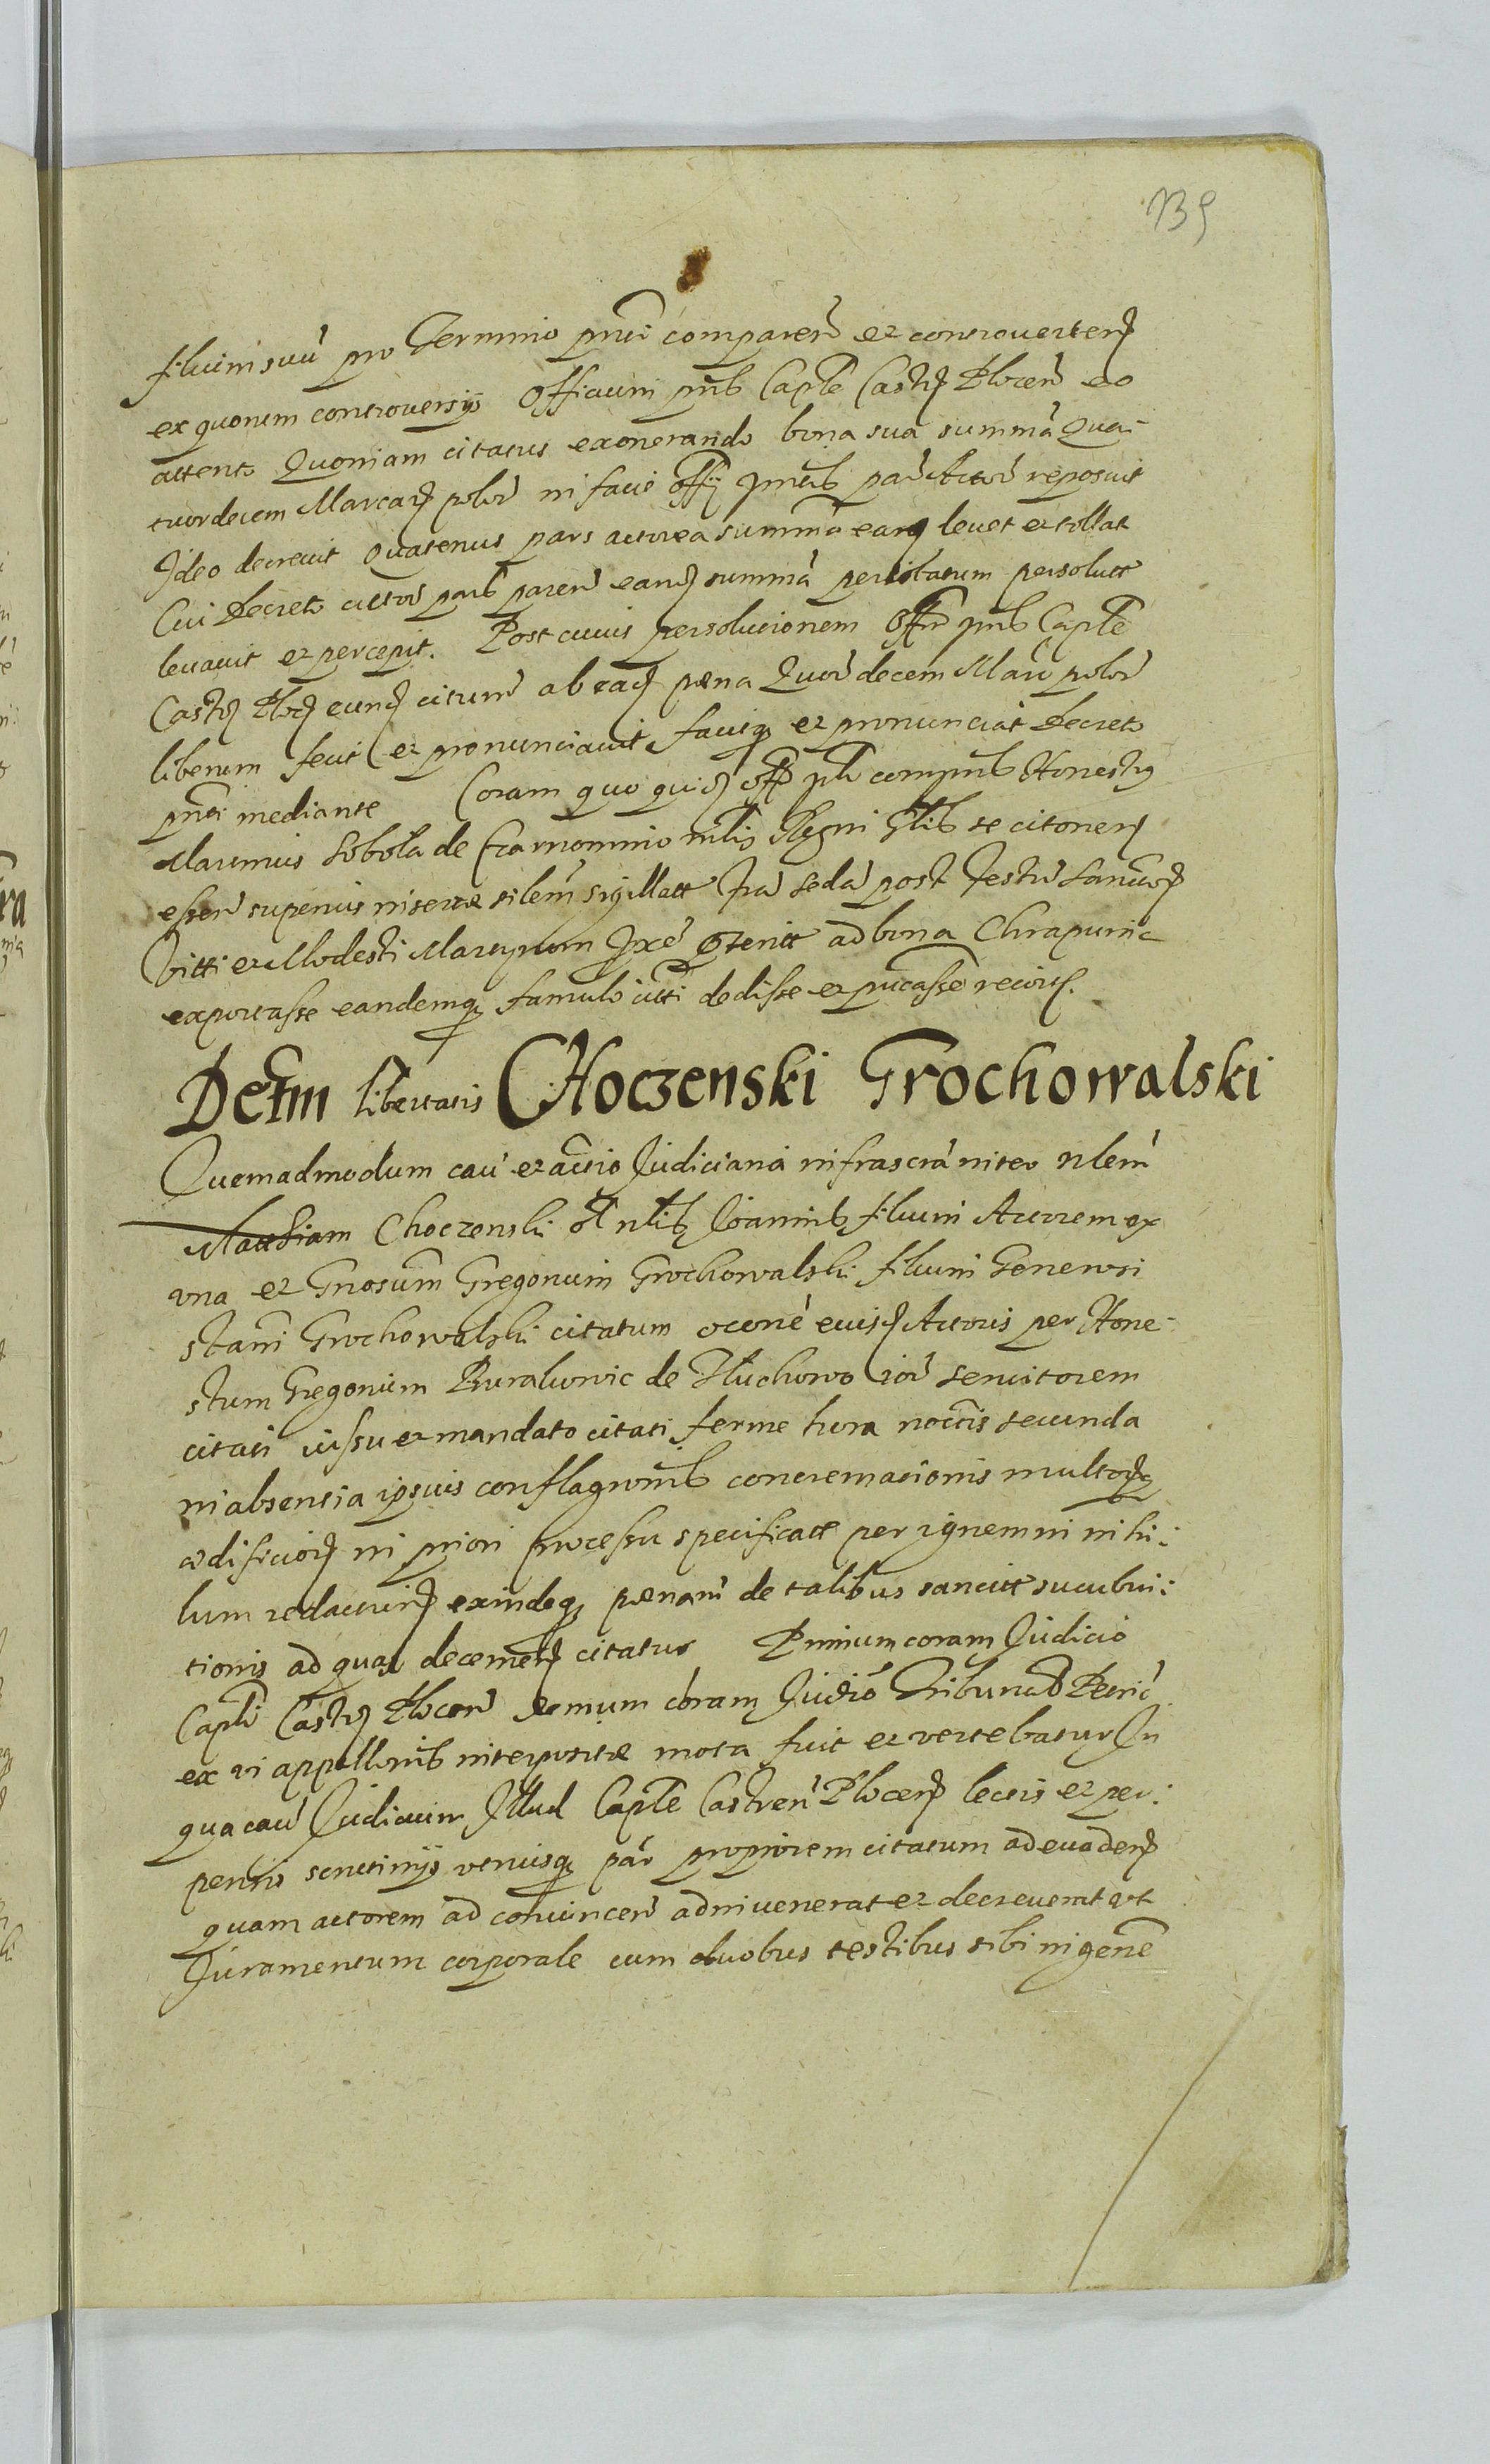 139
filium suu pro Termino pnti comparen et controverten
ex quorum controversijs Officium pns Caple Castr Plocen eo
attento Quoniam citatus exonerando bona sua summa Qua-
tuordecem Marcar polor in facie offi pntis par Actor reposuit
Ideo decrevit Quatenus pars actorea summa eam levet et tollat
Cui Decreto actor pars paren eand summa per citatum persolutt
levavit et percepit. Post cuius persolucionem Offm pns Caple
Castr Ploc eund citum ab ead pæna Quor decem Marc polor
liberum fecit et pronunciavit facitq et pronunciat Decreto
pnti mediante Coram quo quid offo pti comprns Honestus
Martinus Sobola de Czarnominio mlis Regni Glis se citonem
essen superius insertæ silem sigillatt fra seda post festu Sanctor
Vitti et Modesti Martyrum pxe pteritt ad bona Chrapunie
exportasse eandemq famulo citti dedisse et pucasse recort.
Decrm libertatis CHoczenski Grochowalski
Quemadmodum cau et actio Judiciaria infrascra inter nlem
Mathiam Choczenski ol nlis Joannis filium Actorem ex
una et Gnosum Gregorium Grochowalski filium Generosi
Stani Grochowalski citatum occone euisd Actoris per Hone-
stum Gregorium Buralowic de Tluchowo ior servitorem
citati iussu et mandato citati ferme hora noctis secunda
in absentia ipsius conflagronis concremacionis multorq
ædificior in priori processu specificatt per ignem in nihi-
lum redactur exindeq pænam de talibus sancitt sucubui-
tionis ad qua decernen citatur Primum coram Judicio
Capli Castr Plocen demum coram Judicio Tribunal Petric
ex vi appellonis interpositæ mota fuit et vertebatur In
qua cau Judicium Illud Caple Castren Plocen lectis et per-
pensis scrutinijs utriusq par propriorem citatum ad evaden
quam actorem ad convincen adinvenerat et decreverat ut
Juramentum corporale cum duobus testibus sibi in gene